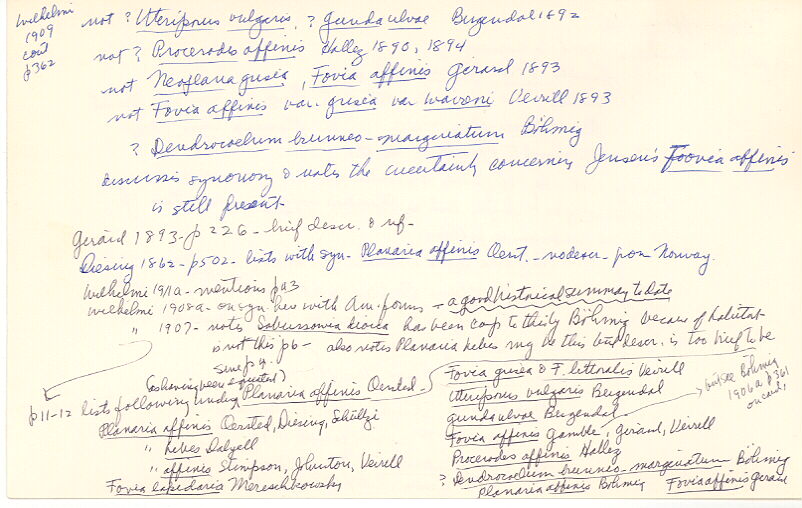 Wilhelmi
1909
cont
p362
not ? Uteriporus vulgaris, ? Gunda ulvae Bergendal 1892
not ? Procerodes affinis Hallez 1890, 1894
not Neoplana grisea, Fovia affinis Girard 1893
not Fovia affinis var. grisea var warreni Verrill 1893
? Dendrocoelum brunneo-marginatum Böhmig
discusses synonomy & notes the uncertainty concerning Jensen's Foovia affinis
is still present
Girard 1893-p 226 - brief descr. & ref-
Diesing 1862-p502- lists with syn- Planaria affinis Oerst. - no descr - from Norway.
Wilhelmi 1911a - mentions p93
Wilhelmi 1908a - on syn. here with Am. forms - a good historical summary to date
" 1907- notes Sabussowia dioica has been comp to this by Böhmig because of habitat
is not this p6 - also notes Planaria hebes may be this but descr. is too brief to be
sure p4.
(as having been equated)
p11-12 lists following under Planaria affinis Oersted -
Planaria affinis Oersted, Diesing, Schultze
" hebes Dalyell
" affinis Stimpson, Johnston, Verrill
Fovia lapidaria Mereschkowsky
Fovia grisea & F. littoralis Verrill
Uteriporus vulgaris Bergendal
Gunda ulvae Bergendal
Fovia affinis Gamble, Girard, Verrill
Procerodes affinis Hallez
? Dendrocoelium brunneo-marginatum Böhmig
Planaria affinis Böhmig Fovia affinis Girard
but see Böhmig
1906a p361
on card,